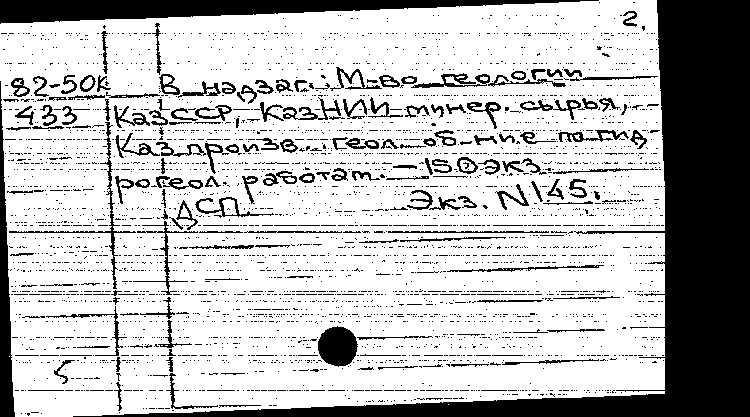 2.
82-50к В надзаг.: М-во геологии
433 КазССР, КазНИИ минер. сырья,
Каз. произв. геол. об-ние по гид-
рогеол. работам. — 150 экз.
ДСП. Экз. N 145.
5